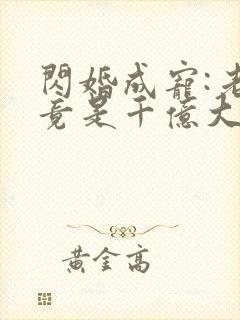 閃婚成寵:老
竟是千億大
黃金高